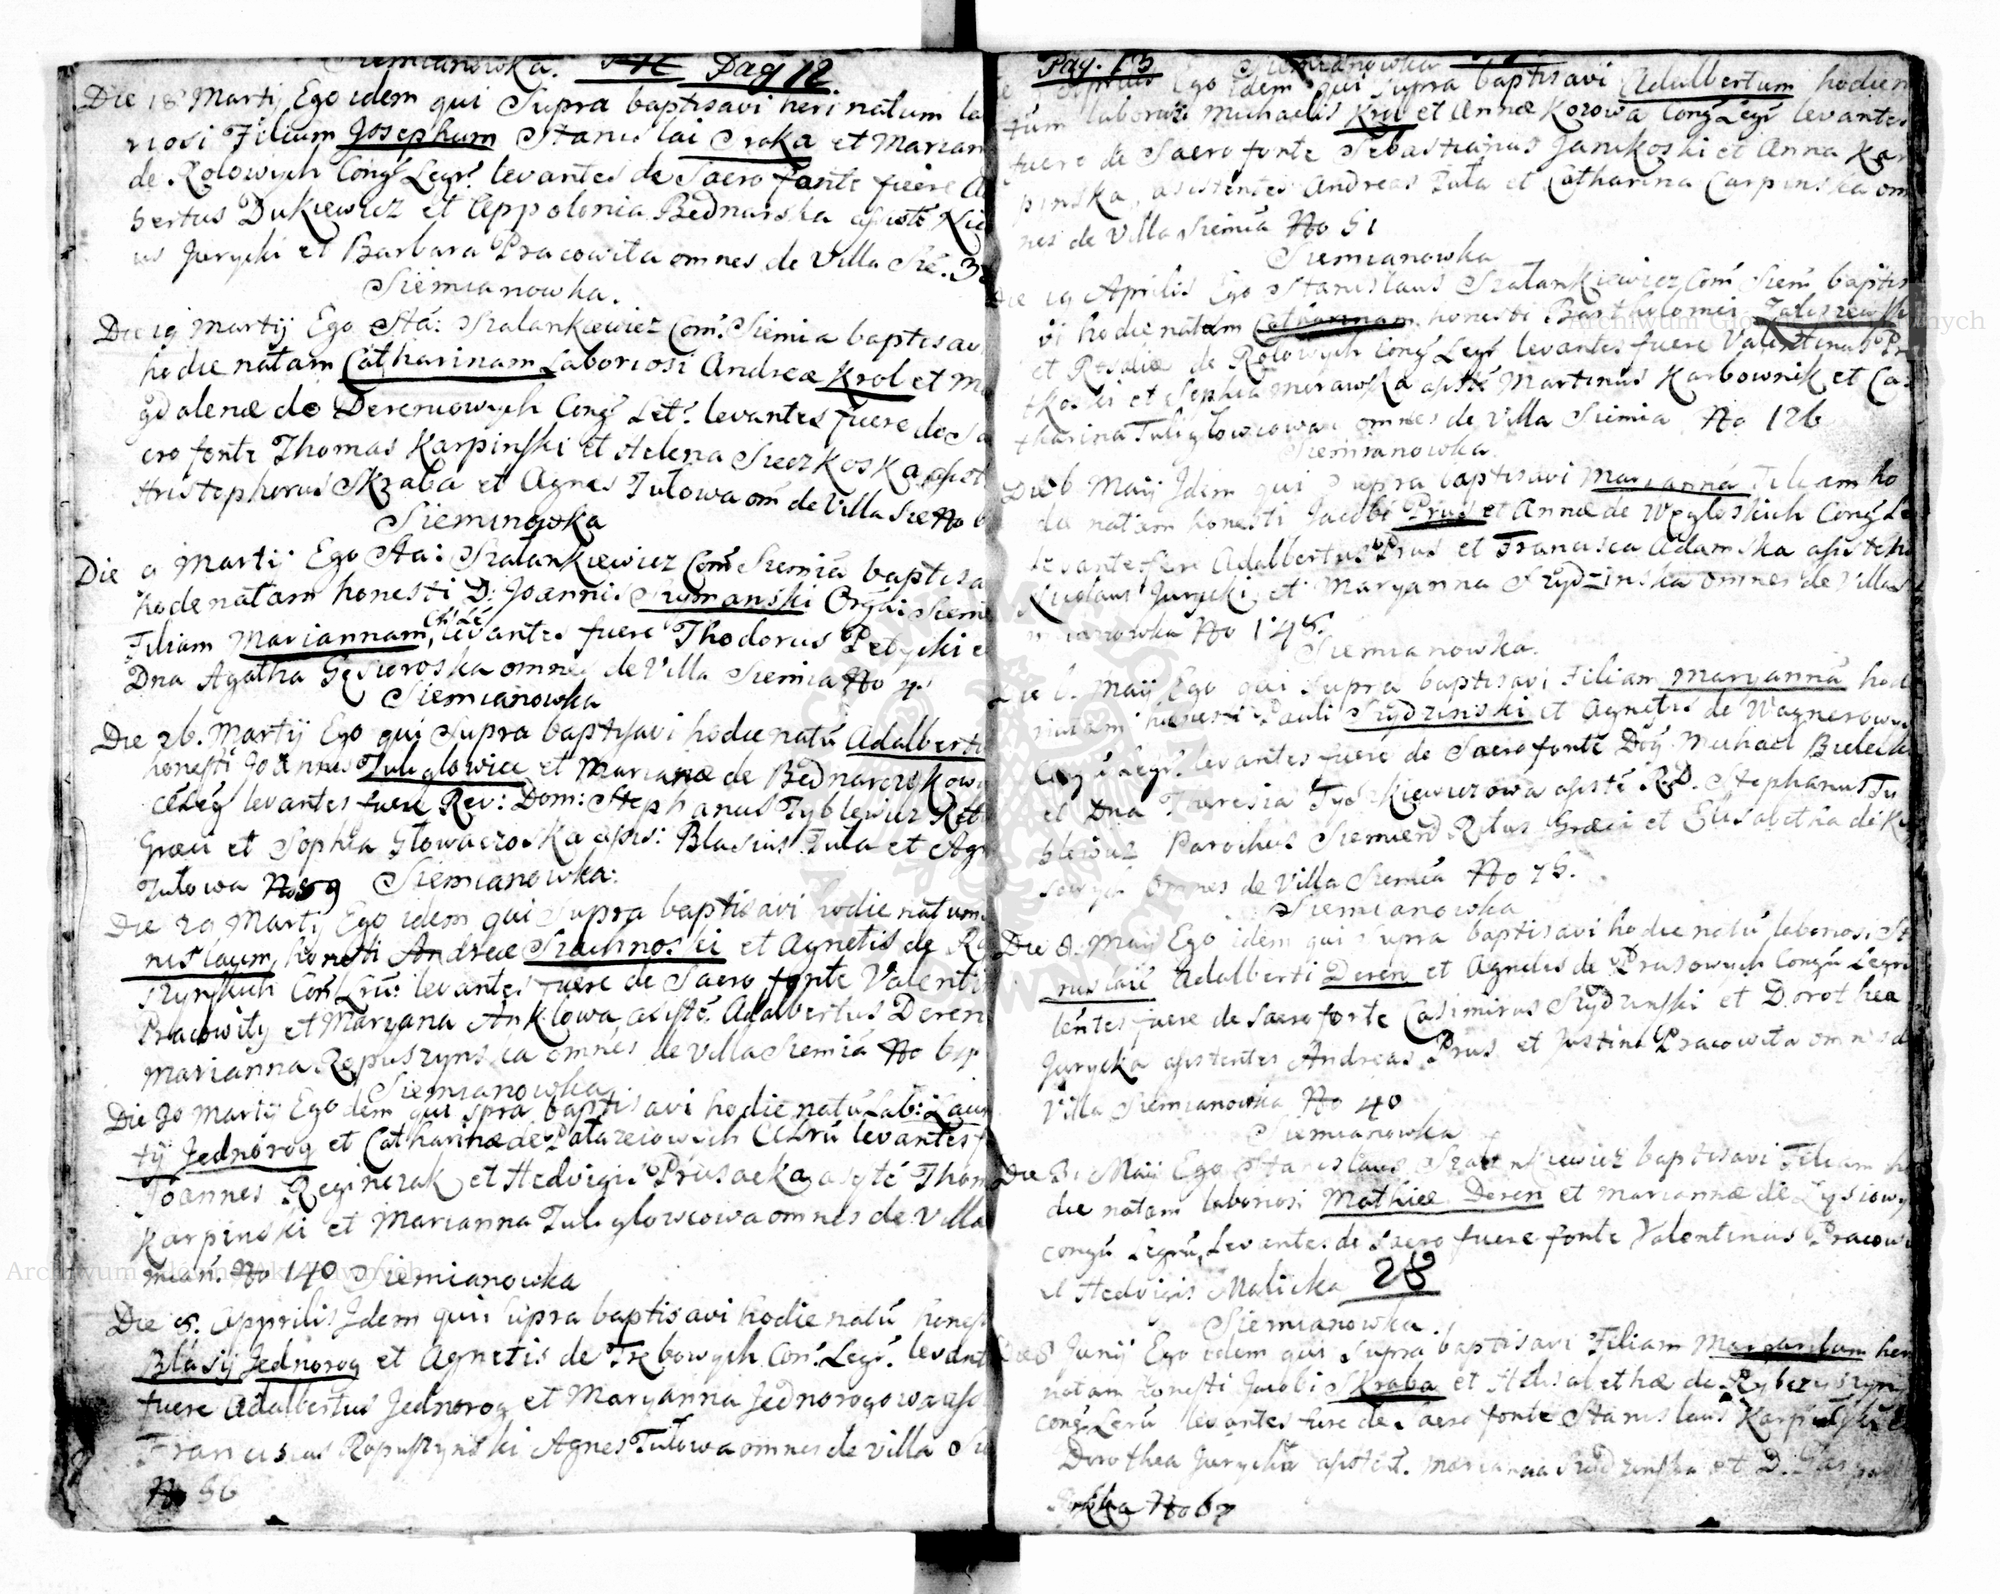 Siemianowka. Pag 12
Die 18 Martij Ego idem qui Supra baptisavi heri natum la
riosi Filium Josephum Stanislai Sroka et Marian
de Rolowych Cong Legr. levantes de Sacro fonte fuere A
bertus Dukiewicz et Appolonia Bednarska assiste Nic
us Jurycki et Barbara Pracowita omnes de Villa Sie. 3
Siemianowka.
Die 19 Martij Ego Sta: Szalankiewicz Com. Siemia baptisav
hodie natam Catharinam Laboriosi Andreæ Krol et Ma
gdalenæ de Dereniowych Cong Let. levantes fuere de Sa
cro fonte Thomas Karpinski et Helena Sieczkoska assist
Hristophorus Skraba et Agnes Tulowa om de Villa Sie No 6
Sieminowka
Die Martij Ego Sta: Szalankiewicz Com Siemia baptisa
hode natam honesti D: Joannis Szymanski Orga: Siemi
Filiam Mariannam, levantes fuere Thodorus Petycki e
Dna Agatha Gęsioroska omnes de Villa Siemia No 4.
Siemianowka
Die 26. Martij Ego qui Supra baptisavi hodie natū Adalbertu
honesti Joannis Tuliglowicz et Marianæ de Bednarczykowi
CēLeg levantes fuere Rev: Dom: Stephanus Tyblewicz Ret
Græci et Sophia Glowaczoska assis: Blasius Tula et Agn
Tulowa No 59 Siemianowka:
Die 29 Martij Ego idem qui Supra baptisavi hodie natum
nislaum, honesti Andreæ Szachnoski et Agnetis de Ro
szynskich Con Lrū: levantes fuere de Sacro fonte Valenti
Pracowity et Maryana Anklowa, asistē. Adalbertus Deren
Marianna Ropuszynska omnes de Villa Siemiā No 6
Siemianowka
Die 30 Martij Ego dem qui spra baptisavi hodie natū Lab: Laur
tij Jednorog et Catharinæ de Patazeiowych CLrū levantes f
Joannes Reginczak et Hedvigis Prusacka asystē Thom
Karpinski et Marianna Tuliglowiowa omnes de Villa
mian. No 140 Siemianowka
Die 8. Apprilis Idem qui Supra baptisavi hodie natū honest
Blasij Jednorog et Agnetis de Trębowych Con. Legr. levant
fuere Adalbertus Jednorog et Maryanna Jednorogowa asi
Franciscus Ropuszynski Agnes Tulowa omnes de Villa Si
No 56
Pag. 13 Siemianowka
Aprilis Ego Idem qui Supra baptisavi Adalbertum hodie n
tum laboriosi Michaelis Krol et Annæ Kozowa Cong Legr levantes
fuere de Sacro fonte Sebastianus Janikoski et Anna Kar
pinska, asistentes Andreas Tula et Catharina Carpinska om
nes de Villa Siemia No 51
Siemianowka
Die 19 Aprilis Ego Stanislaus Szalankiewicz Com Siem baptis
vi hodie natam Catharinam honesti Bartholomei Zaliszewski
et Rosaliæ de Rolowych Cong Legr levantes fuere Valentinus Pr
et Sophia Murawska assistē Martinus Karbownik et Ca
tharina Tuliglowiowa omnes de Villa Siemia No 126
Siemianowka.
Die 6 Maij Idem qui Supra baptisavi Mariannā Filiam ho
die natam honesti Jacobi Prus et Annæ de Węgloskich Cong Le
levantes fuere Adalbertus Prus et Francisca Adamska assiste
Nicolaus Jurycki et Maryanna Szydzinska omnes de Villa
mianowka No 148.
Siemianowka.
Die 6. Maij Ego qui Supra baptisavi Filiam Maryannā hod
natam honesti Pauli Szydzinski et Agnetis de Wagnerowyc
Congū Legr. levantes fuere de Sacro fontē Dōg Michael Bielecki
et Dna Theresia Tyszkiewiczowa assistē R.D. Stephanus Ty
blewicz Parochus Siemien Ritus Græci et Elisabetha de K
sowych Omnes de Villa Siemia No 75.
Siemianowka
Die 8. Maij Ego idem qui Supra baptisavi hodie natū laboriosi St
nislaū Adalberti Deren et Agnetis de Prusowych Congū Legrū
lentes fuere de Sacro forte Casimirus Szydzinski et Dorothea
Jurycka assistentes Andreas Prus et Justina Pracowita omnes d
Villa Siemianowka No 40
Siemianowka
Die 31 Maij Ego Stanislaus Szalankiewicz baptisavi Filiam ho
die natam laboriosi Mathiæ Deren et Mariannæ de Lysiowy
congū Legrū, Levantes de Sacro fuere fonte Valentinus Pracowi
et Hedvigis Malicka 28
Siemianowka.
Die 8 Junij Ego idem qui Supra baptisavi Filiam Margaritam her
natam honesti Jacobi Skraba et Helisabethæ de Rybczyszyn
cong Lerū levantes fure de Sacro fonte Stanislaus Karpinski e
Dorothea Jurycka assistēt. Marianna Szydzinska et D. Gas
No 67